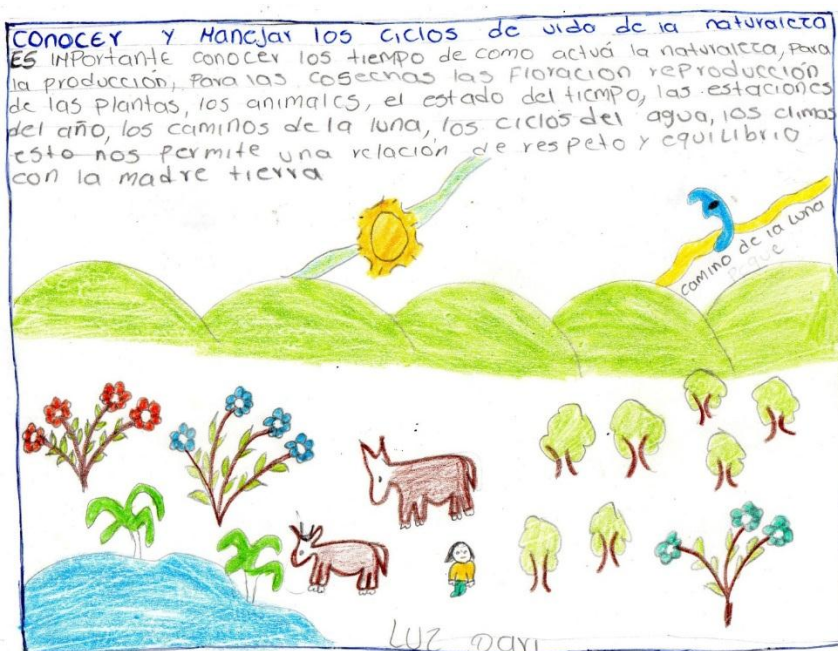 CONOCER Y MANEJAR los ciclos de vida de la naturaleza
ES IMPortantE conocer los tiempo de como actuá la naturaleza, Para
la producción, Para las cosechas las Floracion reProducción
de las plantas, los animales, el estado del tiempo, las estaciones
del año, los caminos de la luna, los ciclos del agua, los climas
esto nos Permite una relación de respeto y equilibrio
con la madre tierra
camino de la luna
LUZ DARI